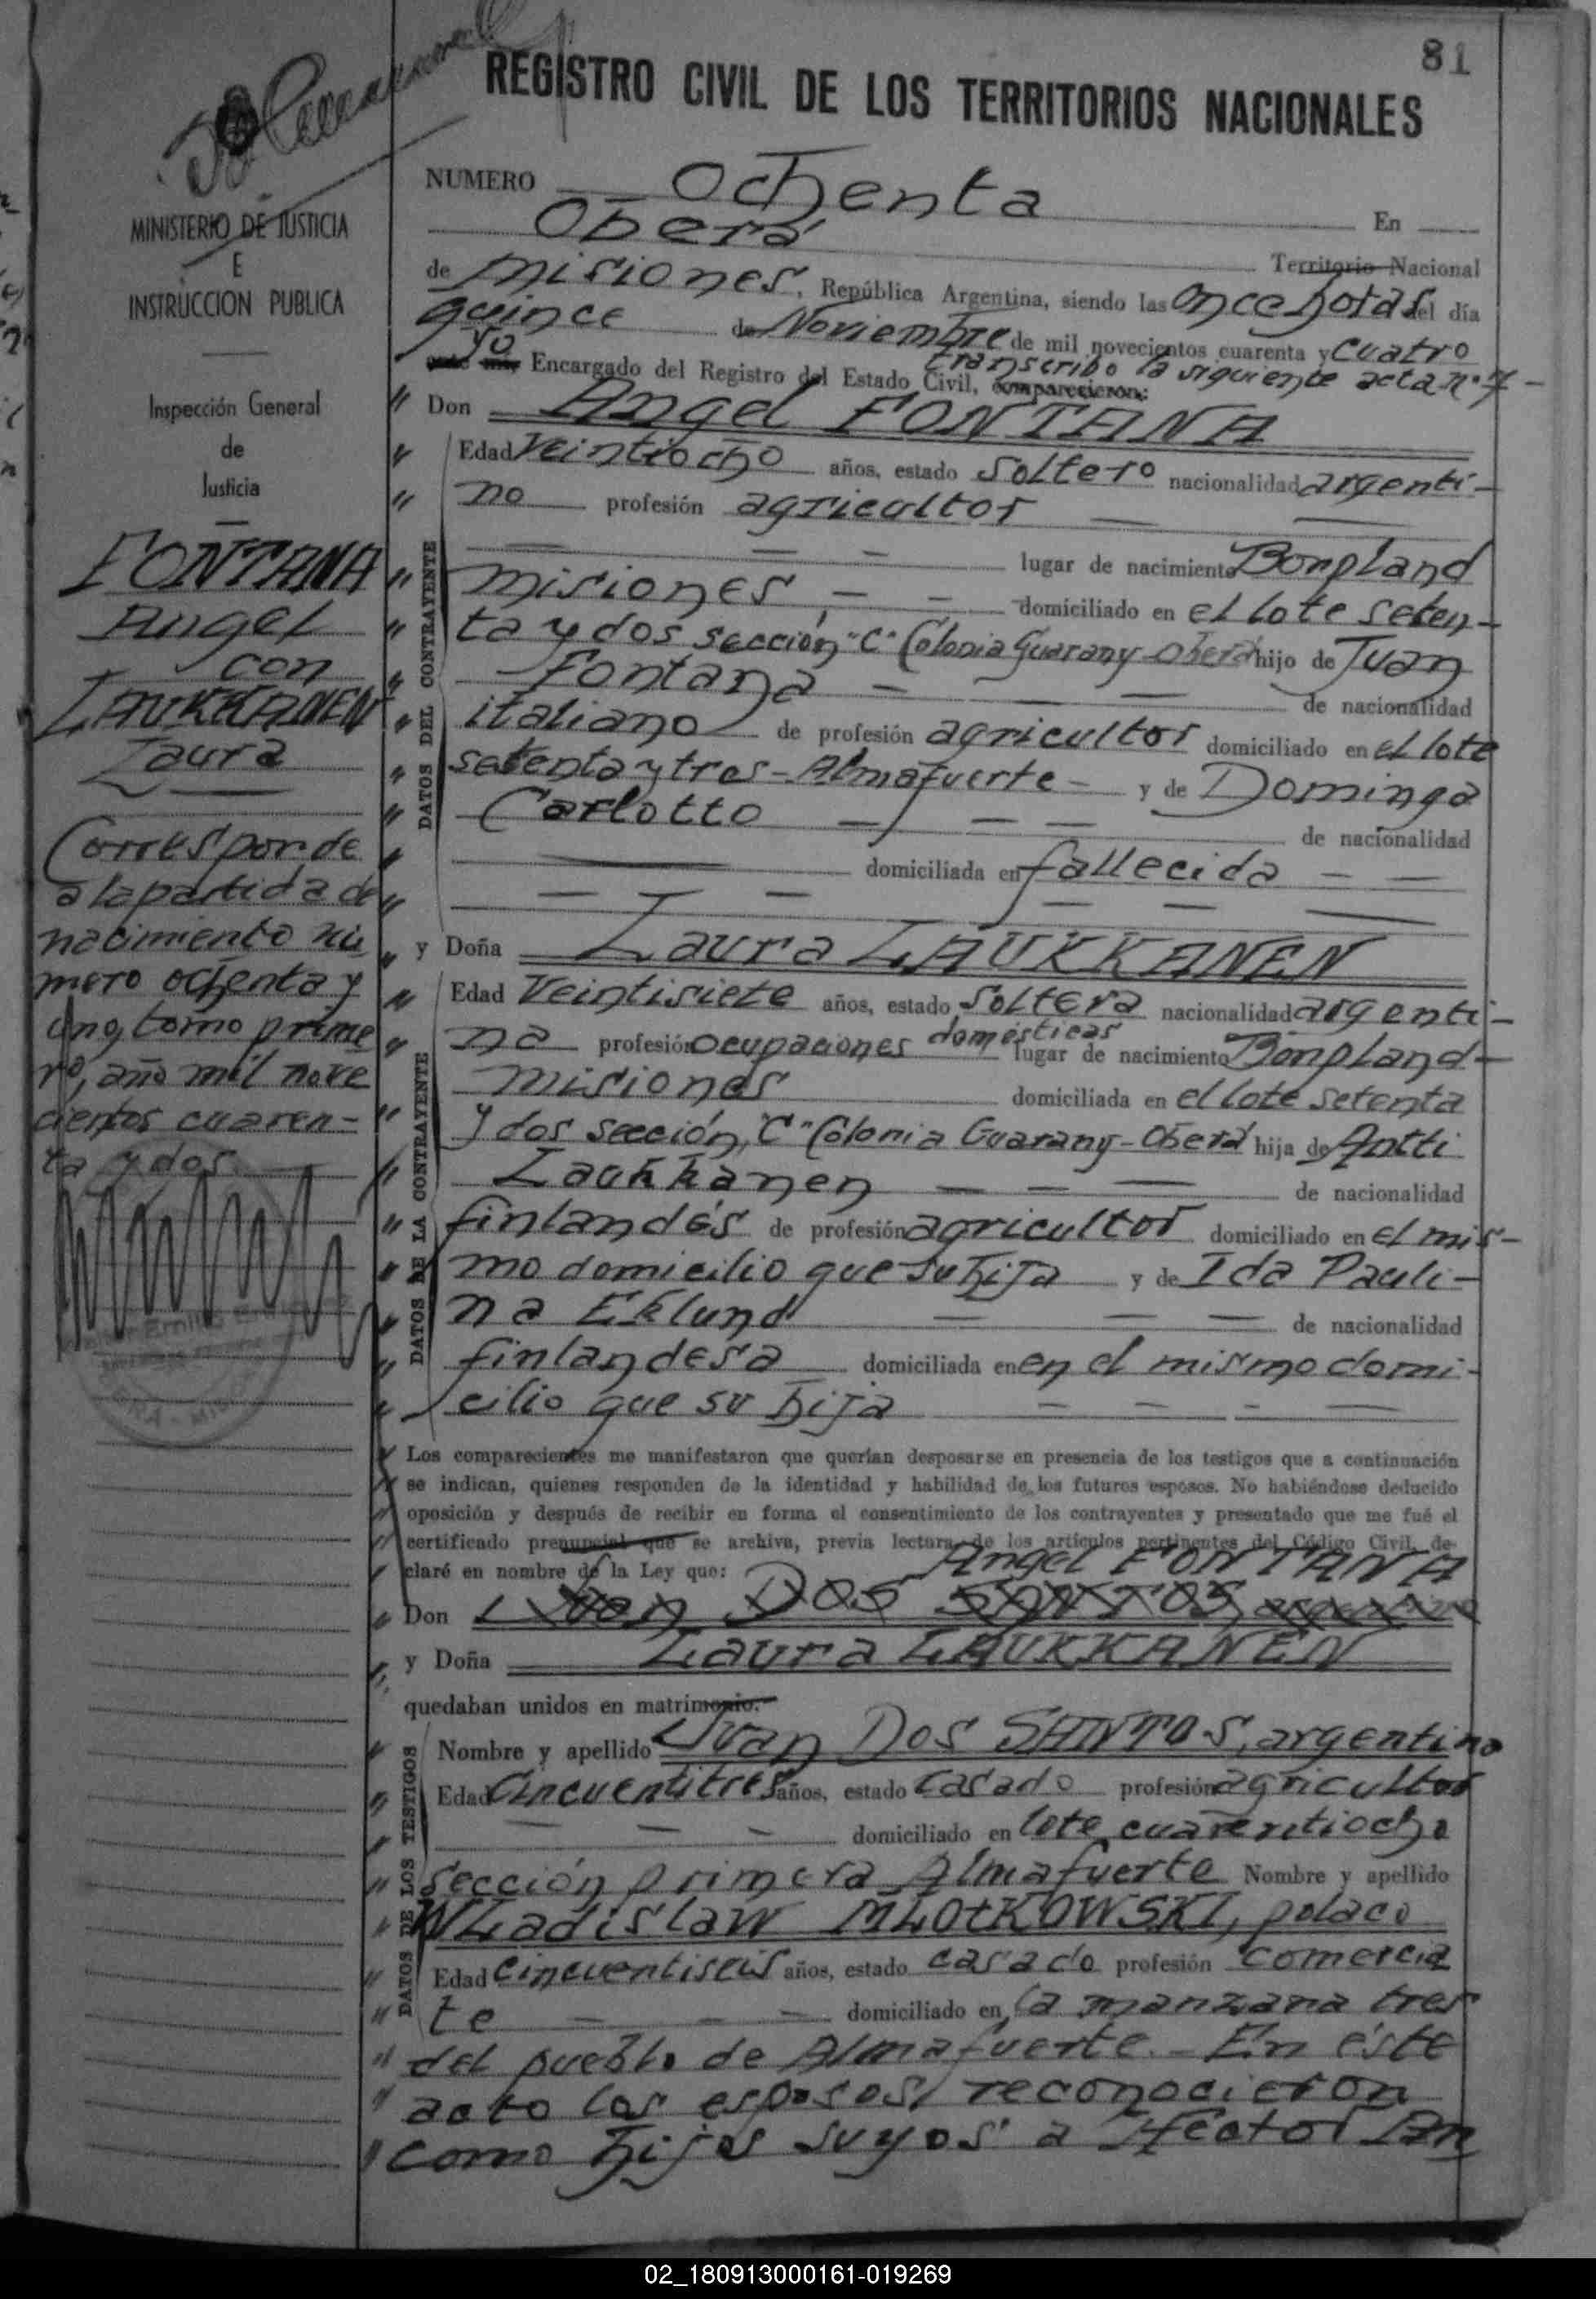 81
REGISTRO CIVIL DE LOS TERRITORIOS NACIONALES
NUMERO Ochenta
En
Oberá
Territorio Nacional
de Misiones, República Argentina, siendo las once horas del día
quince de Noviembre de mil novecientos cuarenta y cuatro
yo Encargado del Registro del Estado Civil, comparecieron: transcribo la siguiente acta nº 7-
" Don Angel FONTANA
" Edad veintiocho años, estado soltero nacionalidad argenti-
" no profesión agricultor
lugar de nacimiento Bonpland
" misiones, - - domiciliado en el lote seten-
" ta y dos sección "C" Colonia Guarany-Oberá hijo de Juan
" Fontana - de nacionalidad
" italiano de profesión agricultor domiciliado en el lote
" setenta y tres - Almafuerte - y de Dominga
" Carlotto - - - de nacionalidad
" domiciliada en fallecida - -
" y Doña Laura LAUKKANEN
" Edad veintisiete años, estado soltera nacionalidad argenti-
" na profesión ocupaciones domésticas lugar de nacimiento Bonpland-
misiones domiciliada en el lote setenta
" y dos sección "C" Colonia Guarany-Oberá hija de Antti
" Laukkanen - - - de nacionalidad
" finlandés de profesión agricultor domiciliado en el mis-
" mo domicilio que su hija y de Ida Pauli-
" na Eklund - - - de nacionalidad
" finlandesa domiciliada en en el mismo domi-
" cilio que su hija - - - -
DATOS DEL CONTRAYENTE
DATOS DE LA CONTRAYENTE
" Los comparecientes me manifestaron que querían desposarse en presencia de los testigos que a continuación
" se indican, quienes responden de la identidad y habilidad de los futuros esposos. No habiéndose deducido
" oposición y después de recibir en forma el consentimiento de los contrayentes y presentado que me fué el
" certificado prenupcial que se archiva, previa lectura de los artículos pertinentes del Código Civil, de-
" claré en nombre de la Ley que: Angel FONTANA
" Don Juan DOS SANTOS, argentino
" y Doña Laura LAUKKANEN
quedaban unidos en matrimonio.
" Nombre y apellido Juan DOS SANTOS, argentino
" Edad cincuentitres años, estado casado profesión agricultor
" - - - domiciliado en lote cuarentiocho
" sección primera Almafuerte Nombre y apellido
" WLadislaw MŁOtKOWSKI, polaco
" Edad cincuentiseis años, estado casado profesión comercia
" te - - - domiciliado en la manzana tres
" del pueblo de Almafuerte.- En éste
" acto los esposos, reconocieron
" como hijos suyos a Hector An
DATOS DE LOS TESTIGOS
MINISTERIO DE JUSTICIA
E
INSTRUCCION PUBLICA
Inspección General
de
Justicia
FONTANA
Angel
con
LAUKKANEN
Laura
Corresponde
a la partida de
nacimiento nú
mero ochenta y
uno, tomo prime
ro, año mil nove
cientos cuaren-
ta y dos
02_180913000161-019269